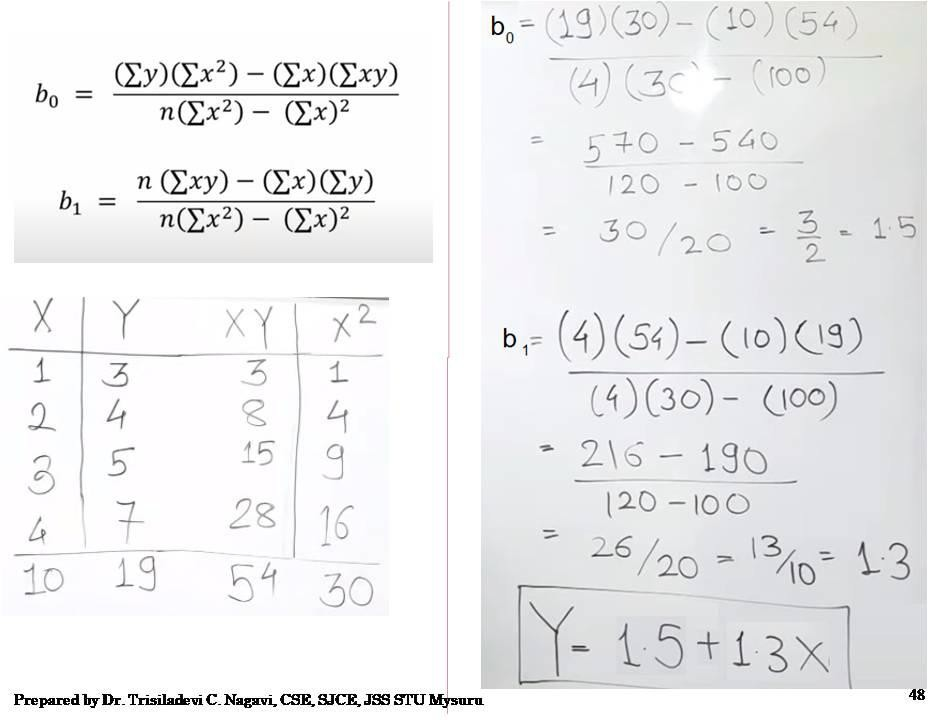 b₀ = (∑y)(∑x²) − (∑x)(∑xy) / n(∑x²) − (∑x)²
b₁ = n (∑xy) − (∑x)(∑y) / n(∑x²) − (∑x)²
X Y XY X²
1 3 3 1
2 4 8 4
3 5 15 9
4 7 28 16
10 19 54 30
b₀ = (19)(30) − (10)(54)
(4)(30) − (100)
= 570 − 540
120 − 100
= 30/20 = 3/2 = 1.5
b₁ = (4)(54) − (10)(19)
(4)(30) − (100)
= 216 − 190
120 − 100
= 26/20 = 13/10 = 1.3
Y = 1.5 + 1.3X
Prepared by Dr. Trisiladevi C. Nagavi, CSE, SJCE, JSS STU Mysuru
48